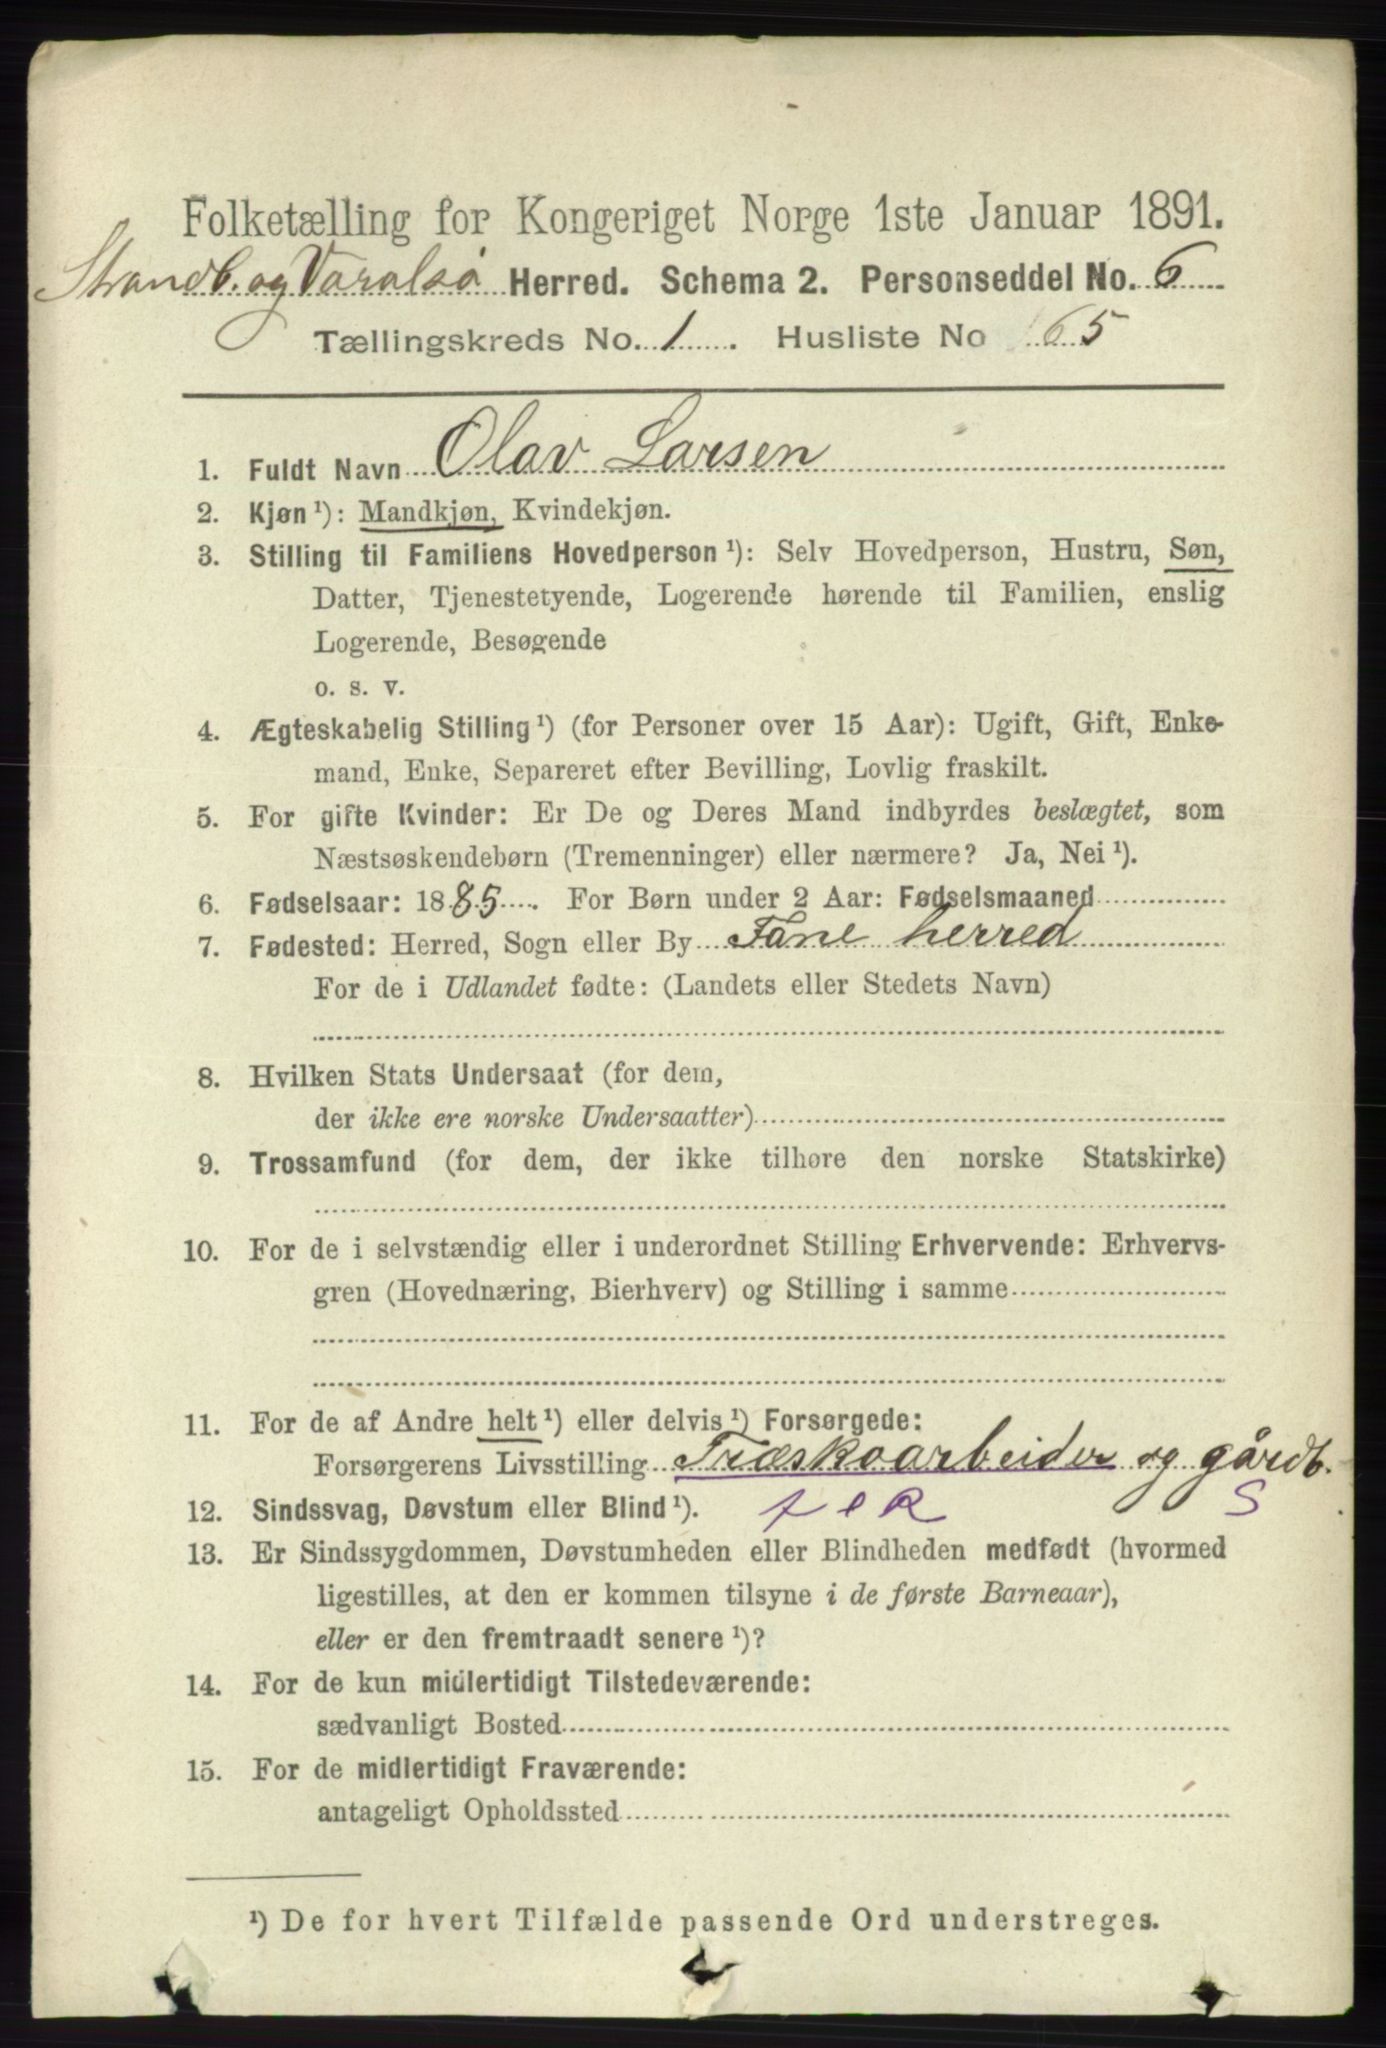 Folketælling for Kongeriget Norge 1ste Januar 1891.
Strandb. og Varalsø Herred. Schema 2. Personseddel No. 6
Tællingskreds No. 1. Husliste No 65
1. Fuldt Navn Olav Larsen
2. Kjøn ¹): Mandkjøn, Kvindekjøn.
3. Stilling til Familiens Hovedperson ¹): Selv Hovedperson, Hustru, Søn,
Datter, Tjenestetyende, Logerende hørende til Familien, enslig
Logerende, Besøgende
o. s. v.
4. Ægteskabelig Stilling ¹) (for Personer over 15 Aar): Ugift, Gift, Enke-
mand, Enke, Separeret efter Bevilling, Lovlig fraskilt.
5. For gifte Kvinder: Er De og Deres Mand indbyrdes beslægtet, som
Næstsøskendebørn (Tremenninger) eller nærmere? Ja, Nei ¹).
6. Fødselsaar: 1885. For Børn under 2 Aar: Fødselsmaaned
7. Fødested: Herred, Sogn eller By Fane herred
For de i Udlandet fødte: (Landets eller Stedets Navn)
8. Hvilken Stats Undersaat (for dem,
der ikke ere norske Undersaatter)
9. Trossamfund (for dem, der ikke tilhøre den norske Statskirke)
10. For de i selvstændig eller i underordnet Stilling Erhvervende: Erhvervs-
gren (Hovednæring, Bierhverv) og Stilling i samme
11. For de af Andre helt ¹) eller delvis ¹) Forsørgede:
Forsørgerens Livsstilling Træskoarbeider og gårdb.
12. Sindssvag, Døvstum eller Blind ¹). S
13. Er Sindssygdommen, Døvstumheden eller Blindheden medfødt (hvormed
ligestilles, at den er kommen tilsyne i de første Barneaar),
eller er den fremtraadt senere ¹)?
14. For de kun midlertidigt Tilstedeværende:
sædvanligt Bosted
15. For de midlertidigt Fraværende:
antageligt Opholdssted
¹) De for hvert Tilfælde passende Ord understreges.